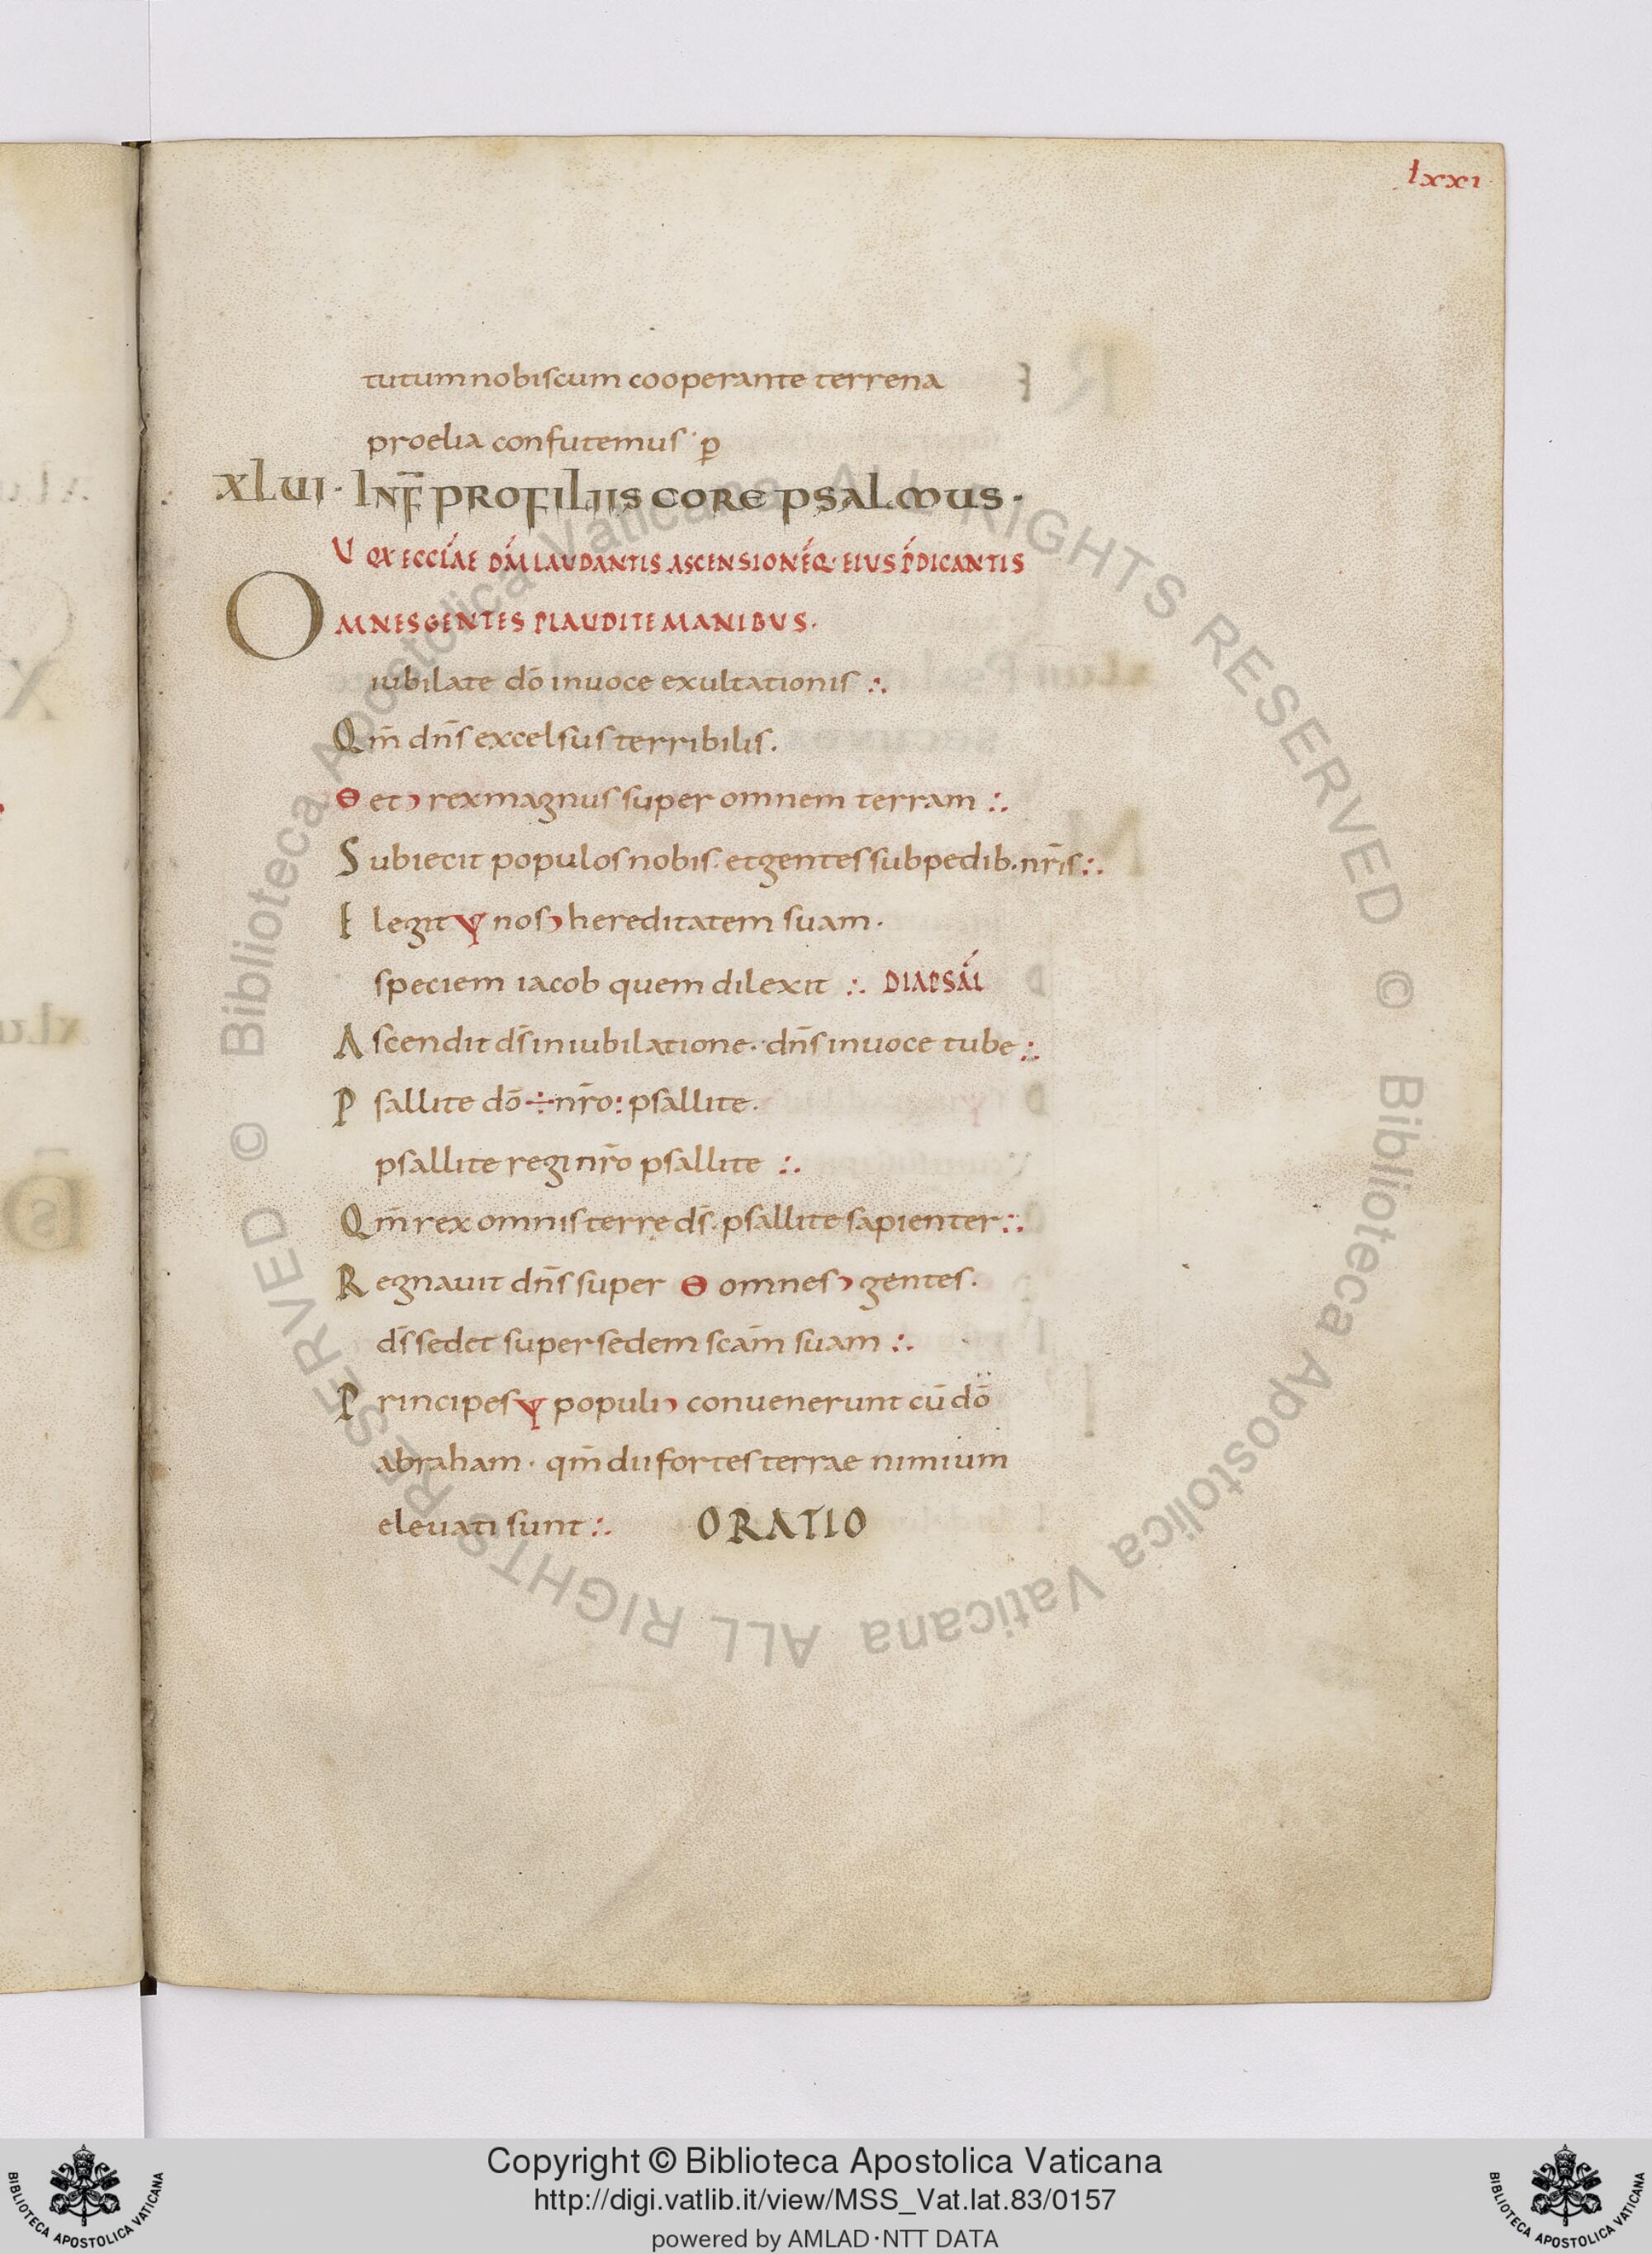 lxxi
tutum nobiscum cooperante terrena
proelia confutemus· ꝑ
xlui· IN F̄ PRO FILIIS CORE PSALMUS·
U OX ECCL̄AE DM̄ LAUDANTIS ASCENSIONĒQ· EIUS P̄DICANTIS
OMNES GENTES PLAUDITE MANIBUS·
iubilate dō in uoce exultationis ∴
Qm̄ dn̄s excelsus terribilis.
ɵ et ͻ rex magnus super omnem terram ∴
Subiecit populos nobis· et gentes sub pedib· nr̄is ∴
Elegit ÷ nos ͻ hereditatem suam·
speciem iacob quem dilexit ∴ DIAPSAL̄
Ascendit ds̄ in iubilatione· dn̄s in uoce tube ∴
Psallite dō ÷ nr̄o : psallite.
psallite regi nr̄o psallite ∴
Qm̄ rex omnis terre ds̄· psallite sapienter ∴
Regnauit dn̄s super ɵ omnes ͻ gentes.
ds̄ sedet super sedem scām suam ∴
Principes ÷ populi ͻ conuenerunt cū dō
abraham· qm̄ dii fortes terrae nimium
eleuati sunt ∴ ORATIO
© Biblioteca Apostolica Vaticana ALL RIGHTS RESERVED © Biblioteca Apostolica Vaticana ALL RIGHTS RESERVED
Copyright © Biblioteca Apostolica Vaticana
http://digi.vatlib.it/view/MSS_Vat.lat.83/0157
powered by AMLAD·NTT DATA
BIBLIOTECA APOSTOLICA VATICANA
BIBLIOTECA APOSTOLICA VATICANA